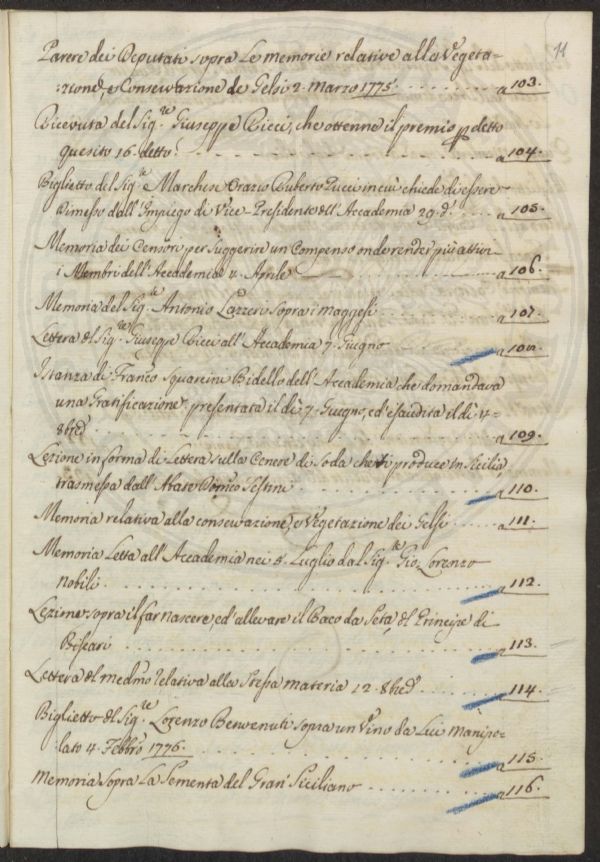 11
Parere dei Deputati sopra le memorie relative alla Vegeta-
zione, e Conservazione de Gelsi 2. Marzo 1775. . . . . . . a 103.
Ricevuta del Sig.re Giuseppe Ricci, che ottenne il premio p detto
quesito 16. detto. . . . . . . a 104.
Biglietto del Sig.re Marchese Orazio Ruberto Pucci in cui chiede di essere
Dimesso dall'Impiego di Vice-Presidente dell'Accademia 29. d.o . . . a 105.
Memoria dei Censori per suggerire un Compenso onde render più attivi
i Membri dell'Accademia 4. Aprile . . . . . . . a 106.
Memoria del Sig.re Antonio Lazzeri sopra i maggesi . . . . . . . a 107.
Lettera del Sig.re Giuseppe Ricci all'Accademia 7. Giugno . . . . a 108.
Istanza di Franco Squarcini Bidello dell'Accademia, che domandava
una Gratificazione, presentata il dì 7. Giugno, ed esaudita il dì 4-
8bre . . . . . . . a 109.
Lezione in forma di Lettera sulla Cenere di Soda che si produce in Sicilia,
trasmessa dall'Abate Domco Sestini . . . . . . . a 110.
Memoria relativa alla conservazione, e Vegetazione dei Gelsi . . . a 111.
Memoria Letta all'Accademia nei 5. Luglio dal Sig.re Gio. Lorenzo
Nobili . . . . . . . a 112.
Lezione sopra il far nascere, ed allevare il Baco da Seta, del Principe di
Biscari . . . . . . . a 113.
Lettera del medmo relativa alla stessa materia 12. 8bre . . . . a 114.
Biglietto del Sig.re Lorenzo Benvenuti sopra un Vino da Lui manipo-
lato 4. Febbro 1776. . . . . . . a 115.
Memoria sopra la Sementa del Gran' Siciliano . . . . . . . a 116.